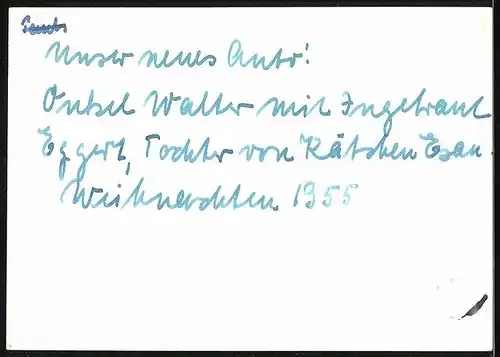 Unser neues Auto!
Onkel Walter mit Ingetraut
Eggert, Tochter von Kätchen Esau.
Weihnachten 1955